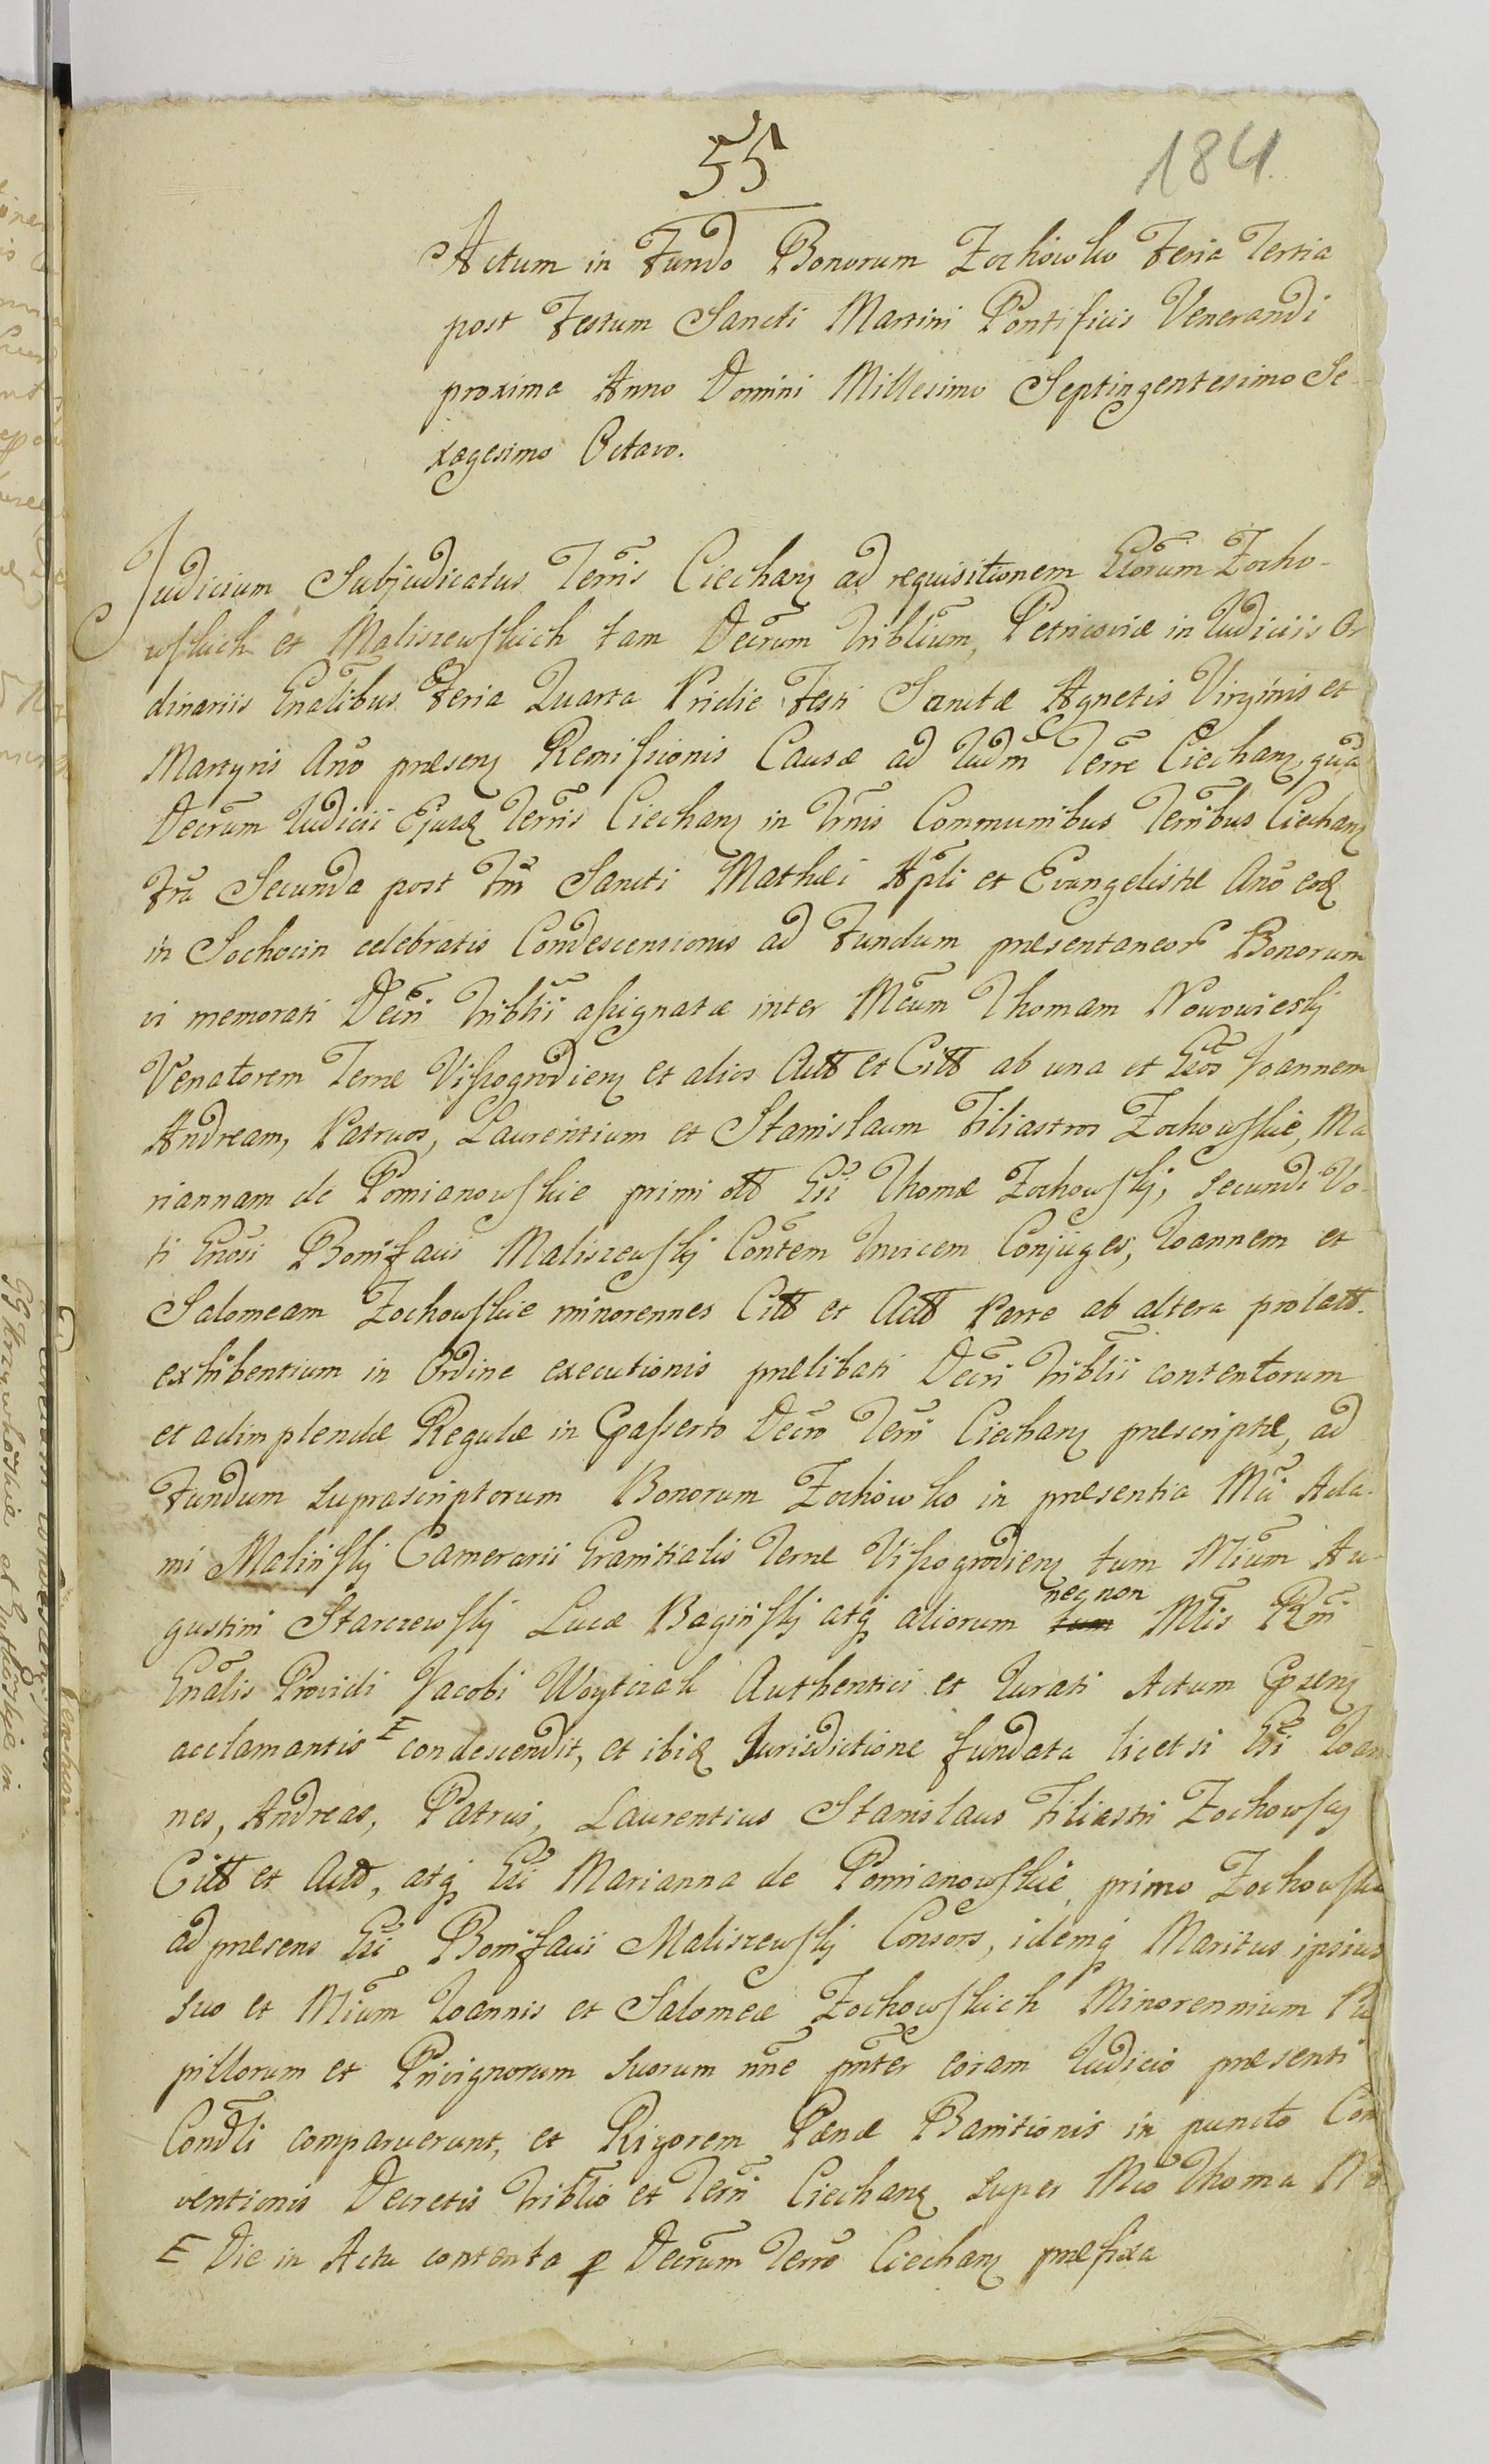 55
184.
Actum in Fundo Bonorum Żochówko Feria Tertia
post Festum Sancti Martini Pontificis Venerandi
proxima Anno Domini Millesimo Septingentesimo Se-
xagesimo Octavo.
Judicium Subjudicatus Terris Ciechan ad requisitionem Gsorum Zocho-
wskich et Maliszewskich tam Decrum Triblium, Petricoviæ in Judiciis Or
dinariis Gnalibus Feria Quarta Pridie Festi Sanctæ Agnetis Virginis et
Martyris Ano præsen Remissionis Causæ ad Judm Terre Ciechan, qua
Decrum Judicii Ejusd Terris Ciechan in Trnis Communibus Terribus Ciechan
Fra Secunda post Fm Sancti Mathæi Apli et Evangelistæ Ano eod
in Sochocin celebratis Condescensionis ad Fundum præsentaneor Bonorum
vi memorati Decri Triblii assignatæ inter Mcum Thomam Nowowiesky
Venatorem Terræ Wissogrodien et alios Actt et Citt ab una et Gsos Joannem
Andream, Patruos, Laurentium et Stanislaum Filiastros Zochowskie, Ma
riannam de Pomianowskie primi ott Gsi Thomæ Zochowsky, secundi Vo-
ti Gnosi Bonifacii Maliszewsky Contem Invicem Conjuges, Joannem et
Salomeam Zochowskie minorennes Citt et Actt Parte ab altera prolatt.
exhibentium in Ordine executionis prælibati Decri Triblii contentorum
et adimplendæ Regulæ in Passerto Decro Terri Ciechan præscriptæ, ad
Fundum suprascriptorum Bonorum Zochówko in præsentia Mci Ada-
mi Malińsky Camerarii Granitialis Terræ Wissogrodien tum Mcium Au-
gustini Starczewsky Lucæ Bagińsky atq aliorum tum nec non Mlis Rni
Gnalis Providi Jacobi Woytczak Authentici et Jurati Actum Præsen
acclamantis E condescendit, et ibid Jurisdictione fundata licet si Gsi Joan
nes, Andreas, Patrui, Laurentius Stanislaus Filiastri Zochowscy
Citt et Actt, atq Gsi Marianna de Pomianowskie, primo Zochowska
ad præsens Gsi Bonifacii Maliszewsky Consors, idemq Maritus ipsius
suo et Mium Joannis et Salomeæ Zochowskich Minorennium Pu
pillorum et Privignorum suorum nne pnter coram Judicio præsenti
Condli comparuerunt, et Rigorem Pænæ Bannitionis in puncto Con
ventionis Decretis Triblio et Terri Ciechan super Mco Thoma No
E Die in Actu contenta p Decrum Terre Ciechan præfixa